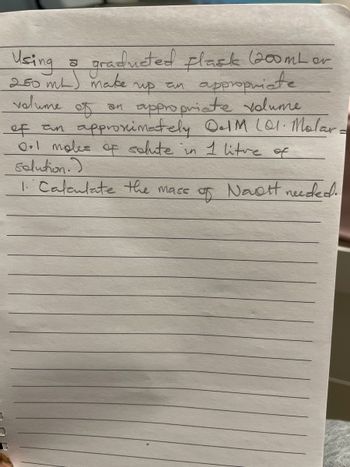 Using a graducted flask (200mL or
250 mL) make up an appropriate
volume of an appropriate volume
of an approximately 0.1M (01. Molar =
0.1 moles of solute in 1 litre of
solution.)
1. Calculate the mass of NaOH needed.